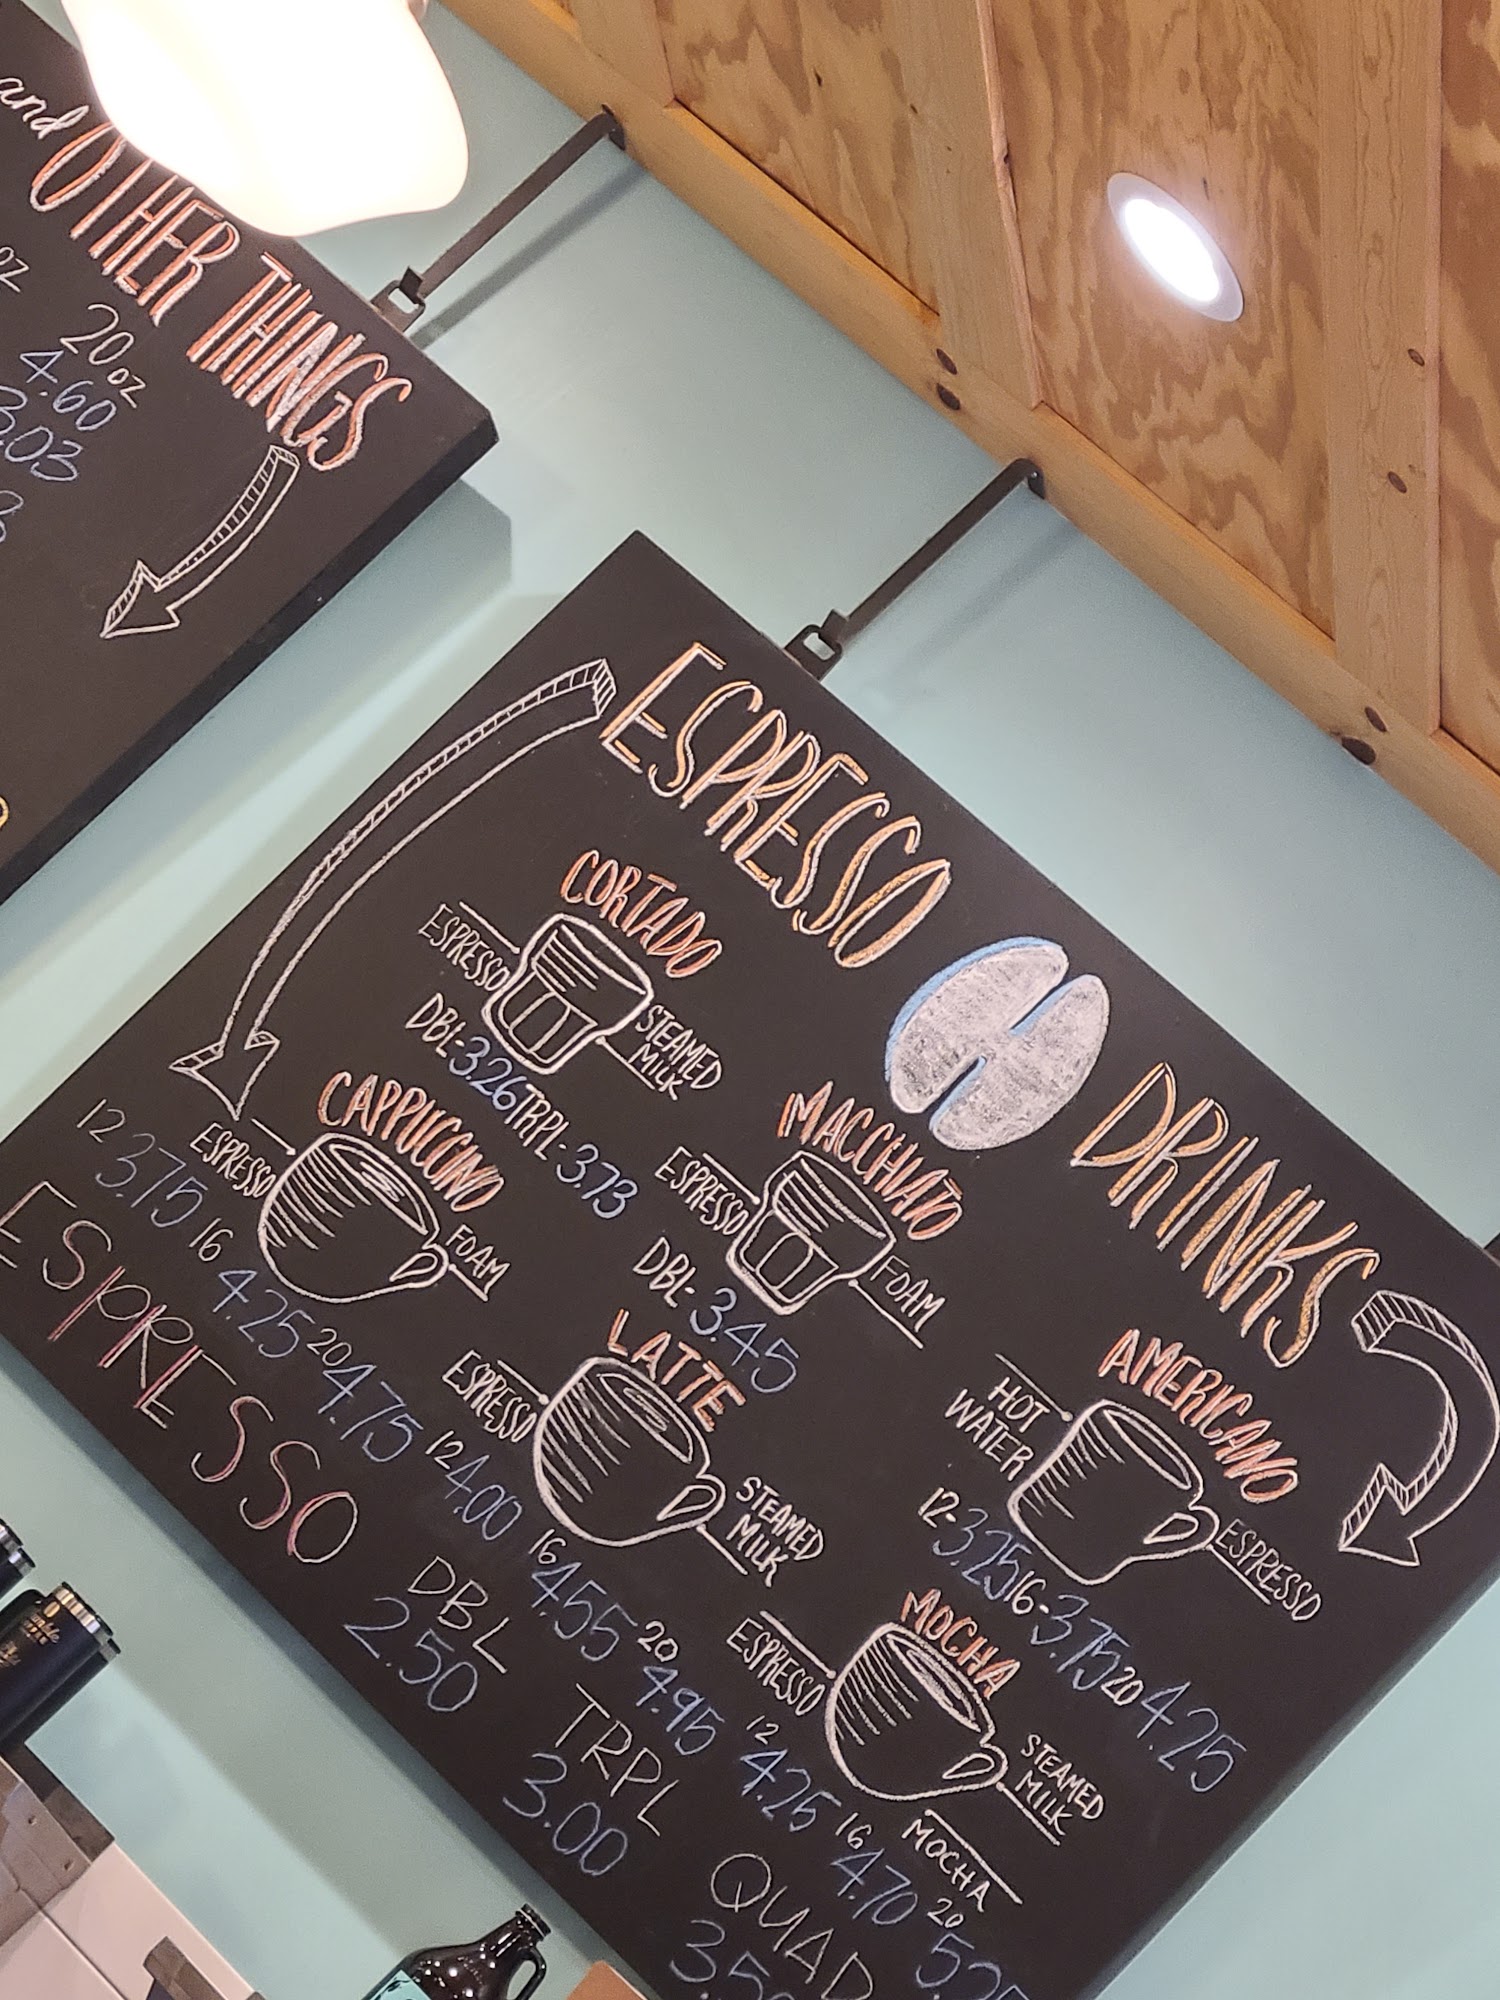 and OTHER THINGS
oz
20 oz
4.60
3.03
ESPRESSO DRINKS
CORTADO
ESPRESSO
STEAMED
MILK
DBL-3.26 TRPL-3.73
MACCHIATO
ESPRESSO
FOAM
DBL-3.45
AMERICANO
HOT
WATER
ESPRESSO
12-3.25 16-3.75 20 4.25
CAPPUCCINO
ESPRESSO
FOAM
12 3.75 16 4.25 20 4.75
LATTE
ESPRESSO
STEAMED
MILK
12 4.00 16 4.55 20 4.95
MOCHA
ESPRESSO
STEAMED
MILK
MOCHA
12 4.25 16 4.70 20 5.25
ESPRESSO
DBL TRPL QUAD
2.50 3.00 3.50